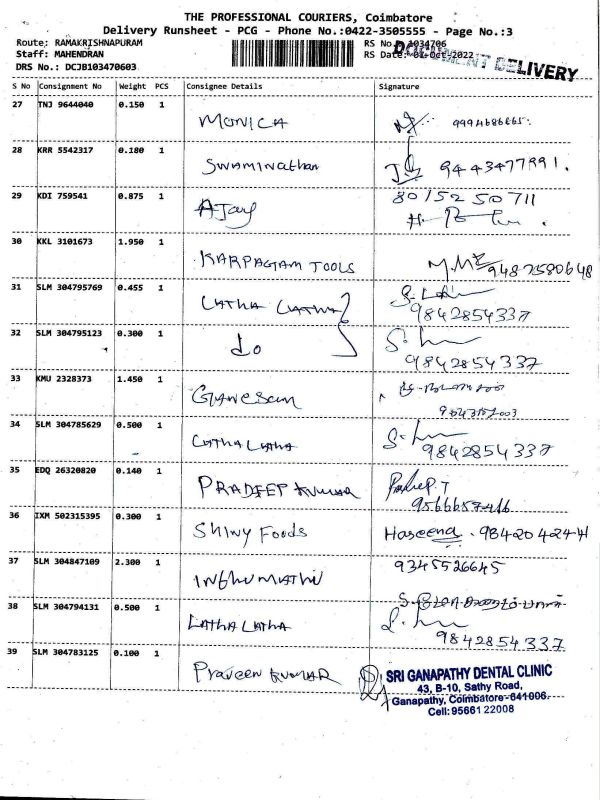 THE PROFESSIONAL COURIERS, Coimbatore
Delivery Runsheet - PCG - Phone No.:0422-3505555 - Page No.:3
Route: RAMAKRISHNAPURAM
RS No.: 1034706
Staff: MAHENDRAN
RS Date: -Oct-2022
DOCUMENT DELIVERY
DRS No.: DCJB103470603
S No Consignment No Weight PCS Consignee Details Signature
27 TNJ 9644040 0.150 1 MONICA
28 KRR 5542317 0.180 1 Swaminathan 9443477991.
29 KDI 759541 0.875 1 AJay 8015250711
30 KKL 3101673 1.950 1 KARPAGAM TOOLS 9487580648
31 SLM 304795769 0.455 1 LATHA LATHA S. 9842854337
32 SLM 304795123 0.300 1 do S. 9842854337
33 KMU 2328373 1.450 1 Ganesan
34 SLM 304785629 0.500 1 LATHA LATHA S. 9842854337
35 EDQ 26320820 0.140 1 PRADEEP KUMAR Pradeep.T
36 IXM 502315395 0.300 1 Shiny Foods Haseena. 9842042441
37 SLM 304847109 2.300 1 INDHUMATHI 9345526645
38 SLM 304794131 0.500 1 LATHA LATHA 9842854337
39 SLM 304783125 0.100 1 Praveen KUMAR
SRI GANAPATHY DENTAL CLINIC
43, B-10, Sathy Road,
Ganapathy, Coimbatore-641006.
Cell: 95661 22008